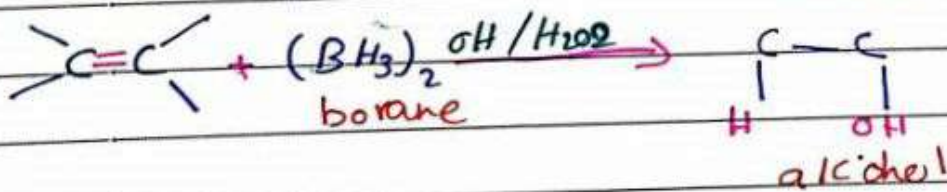 C=C + (BH3)2 OH/H2O2 → C—C
borane
H OH
alcohol